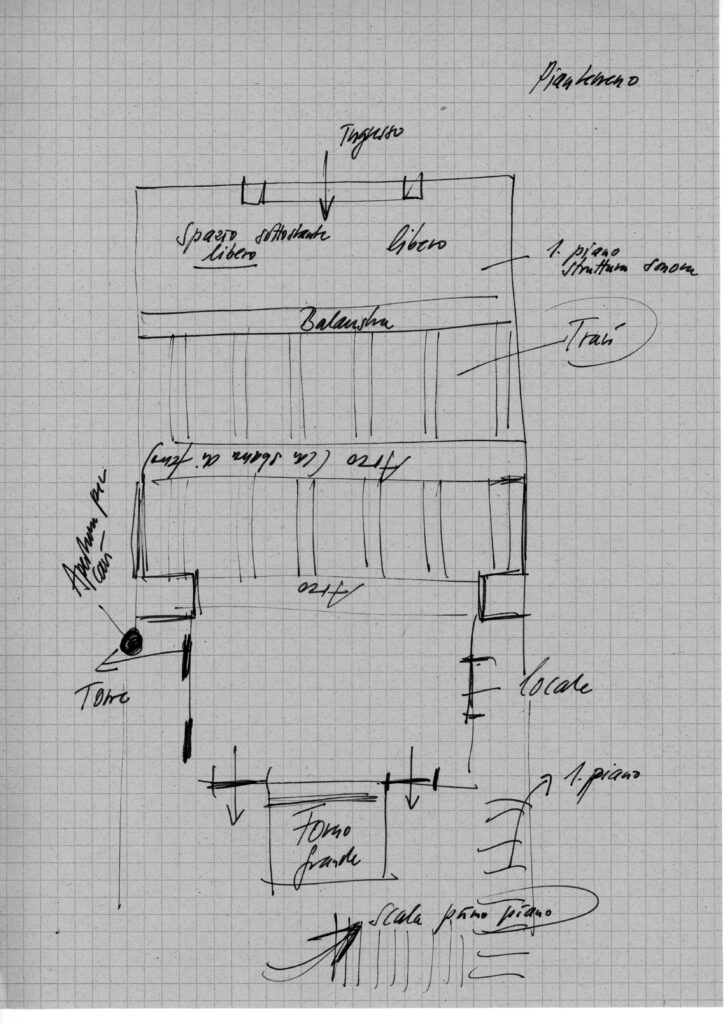 Pianterreno
Ingresso
Spazio sottostante
libero
libero
1. piano
struttura sonora
Balaustra
Travi
Arco (con sbarra di ferro)
Apertura per
cavi
Arco
Torre
Locale
1. piano
Forno
grande
Scala primo piano